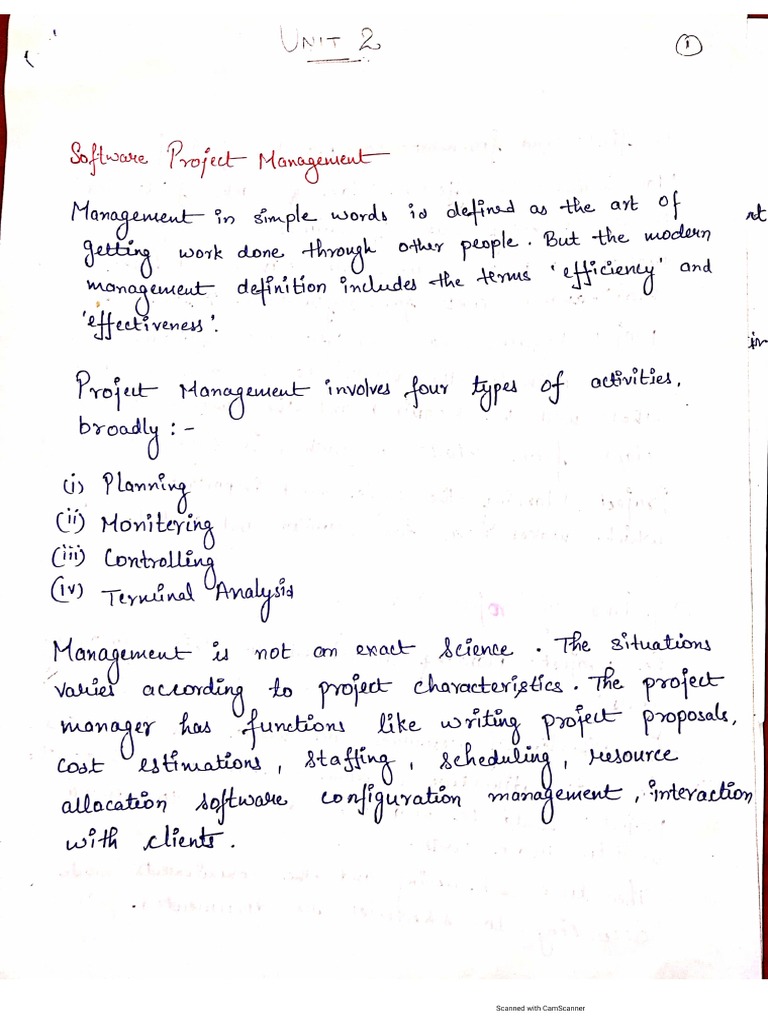 UNIT 2
1
Software Project Management
Management in simple words is defined as the art of
getting work done through other people. But the modern
management definition includes the terms 'efficiency' and
'effectiveness'.
Project Management involves four types of activities,
broadly :-
(i) Planning
(ii) Monitering
(iii) Controlling
(iv) Terminal Analysis
Management is not an exact science. The situations
varies according to project characteristics. The project
manager has functions like writing project proposals,
cost estimations, staffing, scheduling, resource
allocation software configuration management, interaction
with clients.
Scanned with CamScanner